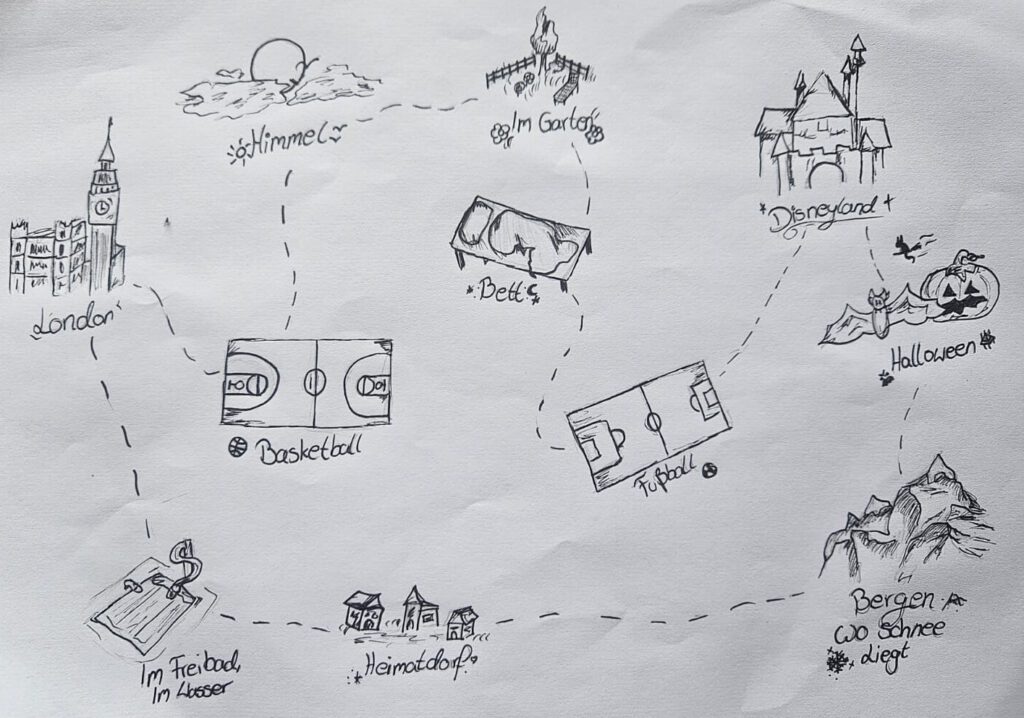 Himmel
Im Garten
Disneyland
London
Bett
Halloween
Basketball
Fußball
Bergen
wo Schnee
Liegt
Im Freibad,
Im Wasser
Heimatdorf